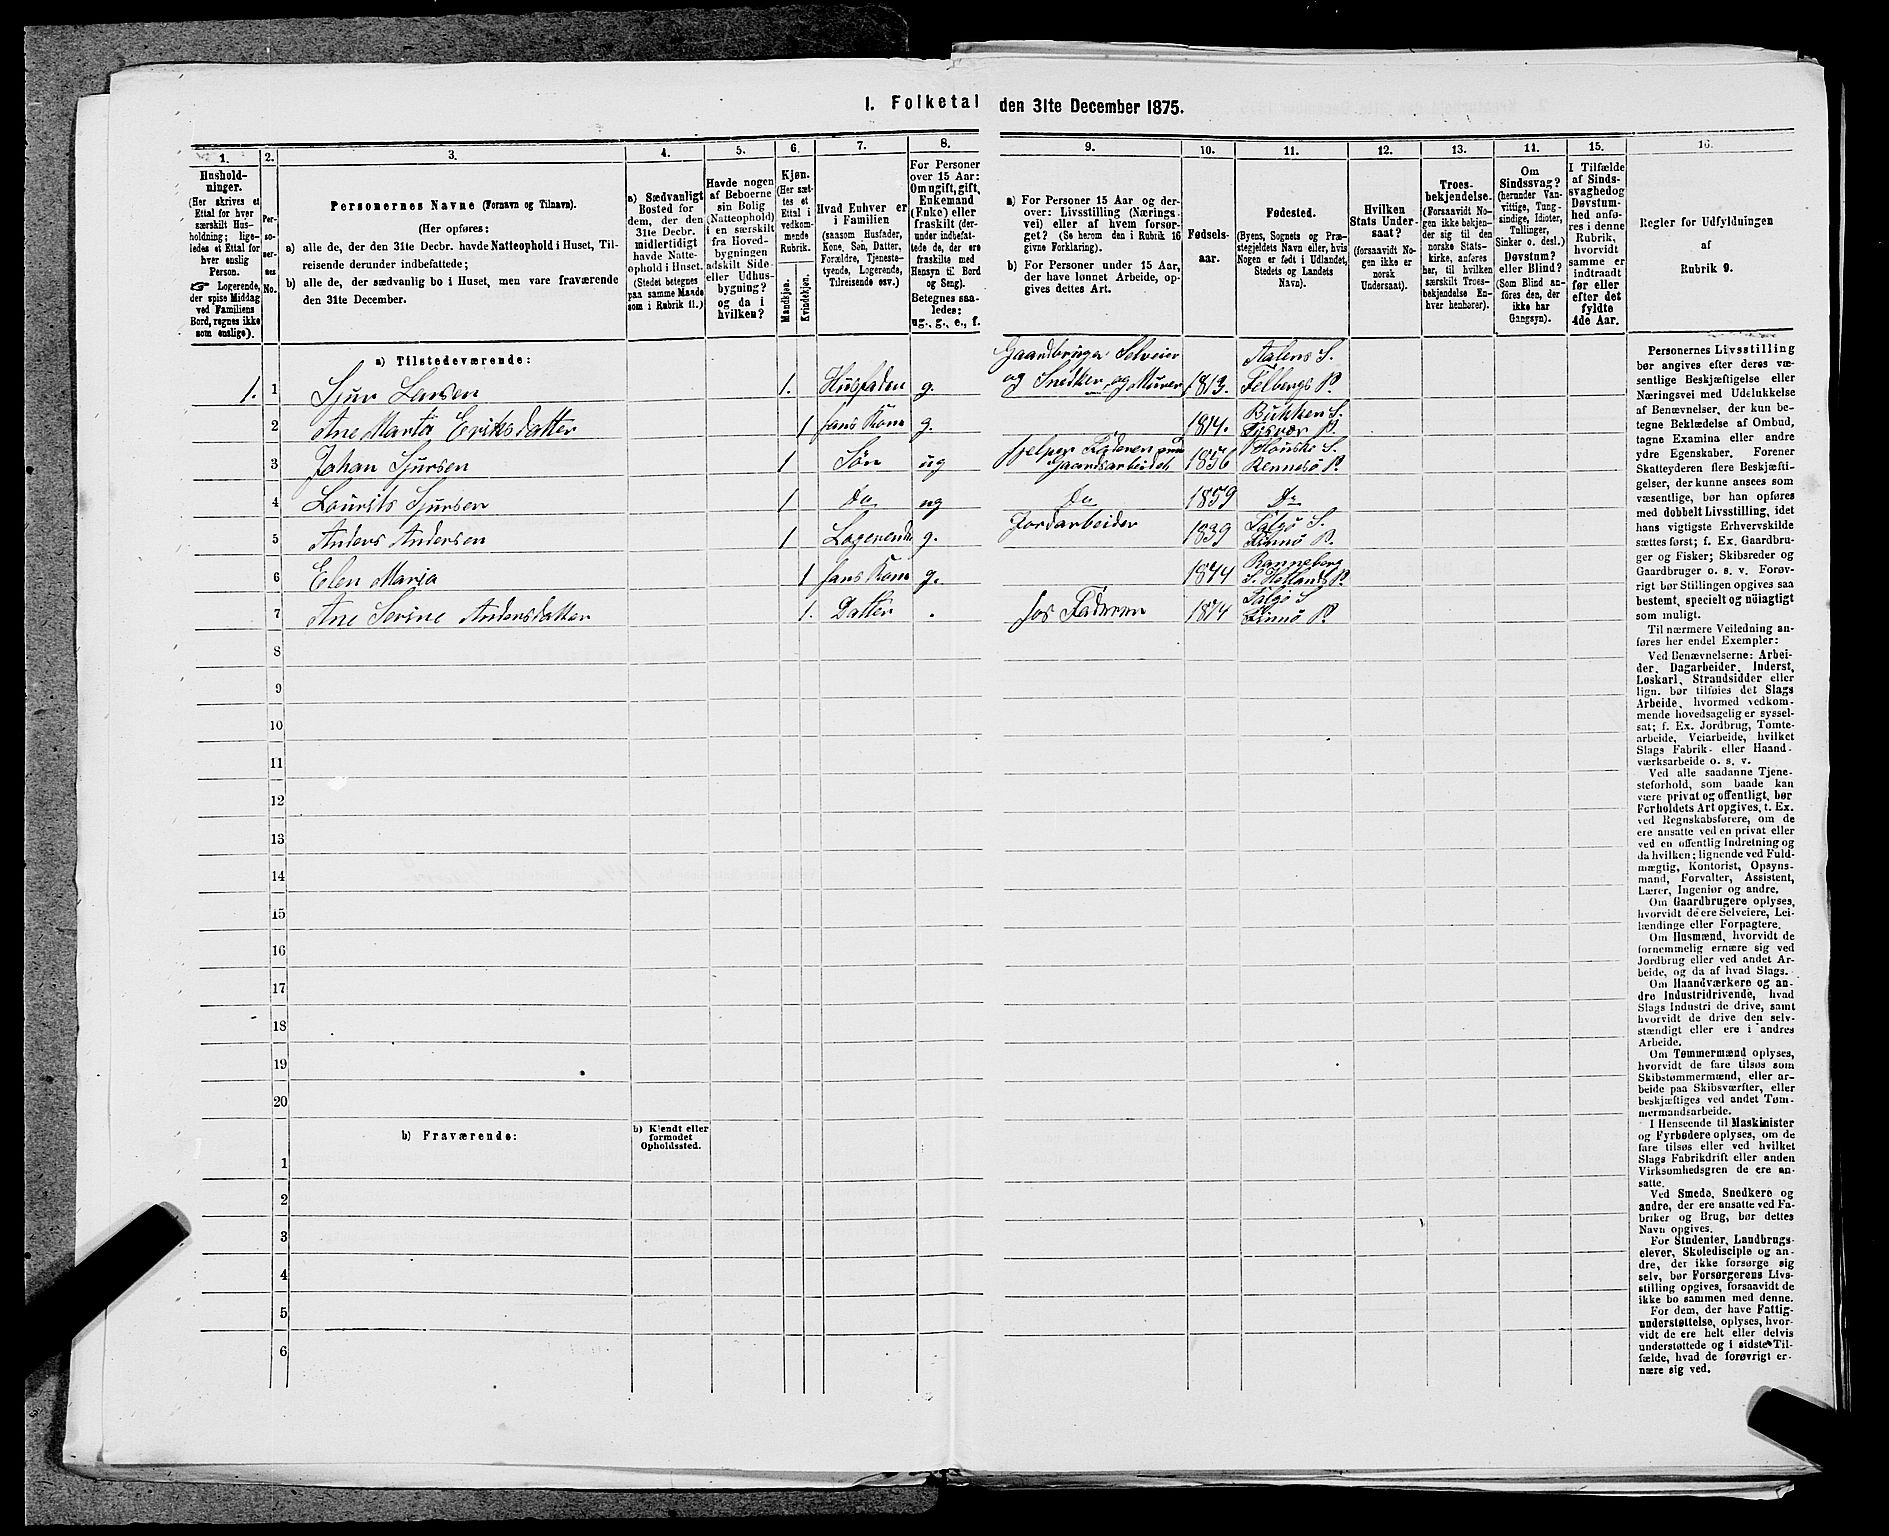 I. Folketal den 31te December 1875.
1. 2. 3. 4. 5. 6. 7. 8. 9. 10. 11. 12. 13. 11. 15. 16.
Hushold-
ninger.
(Her skrives et
Ettal for hver
særskilt Hus-
holdning; lige-
ledes et Ettal for
hver enslig
Person.
☞ Logerende,
der spise Middag
ved Familiens
Bord, regnes ikke
som enslige).
Per-
so-
ner-
nes
No.
Personernes Navne (Fornavn og Tilnavn).
(Her opføres:
a) alle de, der den 31te Decbr. havde Natteophold i Huset, Til-
reisende derunder indbefattede;
b) alle de, der sædvanlig bo i Huset, men vare fraværende
den 31te December.
a) Sædvanligt
Bosted for
dem, der den
31te Decbr.
midlertidigt
havde Natte-
ophold i Huset.
(Stedet betegnes
paa samme Maade
som i Rubrik 11.)
Havde nogen
af Beboerne
sin Bolig
(Natteophold)
i en særskilt
fra Hoved-
bygningen
adskilt Side-
eller Udhus-
bygning?
og da i
hvilken?
Kjøn.
(Her sæt-
tes et
Ettal i
vedkom-
mende
Rubrik.
Mandkjøn.
Kvindekjøn.
Hvad Enhver er
i Familien
(saasom Husfader,
Kone, Søn, Datter,
Forældre, Tjeneste-
tyende, Logerende,
Tilreisende osv.)
For Personer
over 15 Aar:
Om ugift, gift,
Enkemand
(Enke) eller
fraskilt (der-
under indbefat-
tede de, der ere
fraskilte med
Hensyn til Bord
og Seng).
Betegnes saa-
ledes:
ug., g., e., f.
a) For Personer 15 Aar og der-
over: Livsstilling (Nærings-
vei) eller af hvem forsør-
get? (Se herom den i Rubrik 16
givne Forklaring).
b) For Personer under 15 Aar,
der have lønnet Arbeide, op-
gives dettes Art.
Fødsels-
aar.
Fødested.
(Byens, Sognets og Præ-
stegjeldets Navn eller, hvis
Nogen er født i Udlandet,
Stedets og Landets
Navn).
Hvilken
Stats Under-
saat?
(forsaavidt No-
gen ikke er
norsk
Undersaat).
Troes-
bekjendelse.
(Forsaavidt No-
gen ikke bekjen-
der sig til den
norske Stats-
kirke, anføres
her, til hvilken
særskilt Troes-
bekjendelse En-
hver henhører).
Om
Sindssvag?
(herunder Van-
vittige, Tung-
sindige, Idioter,
Tullinger,
Sinker o. desl.)
Døvstum?
eller Blind?
(Som Blind an-
føres den, der
ikke har
Gangsyn).
I Tilfælde
af Sinds-
svaghed og
Døvstum-
hed anfø-
res i denne
Rubrik,
hvorvidt
samme er
indtraadt
før eller
efter det
fyldte
4de Aar.
Regler for Udfyldningen
af
Rubrik 9.
a) Tilstedeværende:
Gaardbruger Selveier Aalens S.
1. 1 Sjur Larsen 1. Husfader g. og Snedker og Murer 1813. P.
2 Ane Marta Eriksdatter 1 hans Kone g. 1814. Bukken S. P.
3 Johan Sjursen 1 Søn ug hjelper Faderen med Gaardsarbeidet 1856 S. Rennesø P.
4 Lourits Sjursen 1 Do ug Do 1859 Do
5 Anders Andersen 1 Logerende g. Jordarbeider 1839 Talgø S. Finnø P.
6 Elen Maria 1 hans Kone g. 1844 Ranneborg S. Hetlands P.
7 Ane Serine Andersdatter 1. Datter . hos Faderen 1874 Talgø S. Finnø P.
8
9
10
11
12
13
14
15
16
17
18
19
20
b) Fraværende:
b) Kjendt eller
formodet
Opholdssted.
1
2
3
4
5
6
Personernes Livsstilling
bør angives efter deres væ-
sentlige Beskjæftigelse eller
Næringsvei med Udelukkelse
af Benævnelser, der kun be-
tegne Beklædelse af Ombud,
tagne Examina eller andre
ydre Egenskaber. Forener
Skatteyderen flere Beskjæfti-
gelser, der kunne ansees som
væsentlige, bør han opføres
med dobbelt Livsstilling, idet
hans vigtigste Erhvervskilde
sættes først; f. Ex. Gaardbru-
ger og Fisker; Skibsreder og
Gaardbruger o. s. v. Forøv-
rigt bør Stillingen opgives saa
bestemt, specielt og nøiagtigt
som muligt.
Til nærmere Veiledning an-
føres her endel Exempler:
Ved Benævnelserne: Arbei-
der, Dagarbeider, Inderst,
Løskarl, Strandsidder eller
lign. bør tilføies det Slags
Arbeide, hvormed vedkom-
mende hovedsagelig er syssel-
sat; f. Ex. Jordbrug, Tomte-
arbeide, Veiarbeide, hvilket
Slags Fabrik- eller Haand-
værksarbeide o. s. v.
Ved alle saadanne Tjene-
steforhold, som baade kan
være privat og offentligt, bør
Forholdets Art opgives, t. Ex.
ved Regnskabsførere, om de
ere ansatte ved en privat eller
ved en offentlig Indretning og
da hvilken; lignende ved Fuld-
mægtig, Kontorist, Opsyns-
mand, Forvalter, Assistent,
Lærer, Ingeniør og andre.
Om Gaardbrugere oplyses,
hvorvidt de ere Selveiere, Lei-
lændinge eller Forpagtere.
Om Husmænd, hvorvidt de
fornemmelig ernære sig ved
Jordbrug eller ved andet Ar-
beide, og da af hvad Slags.
Om Haandværkere og an-
dre Industridrivende, hvad
Slags Industri de drive, samt
hvorvidt de drive den selv-
stændigt eller ere i andres
Arbeide.
Om Tømmermænd oplyses,
hvorvidt de fare tilsøs som
Skibstømmermænd, eller ar-
beide paa Skibsværfter, eller
beskjæftiges ved andet Tøm-
mermandsarbeide.
I Henseende til Maskinister
og Fyrbødere oplyses, om de
fare tilsøs eller ved hvilket
Slags Fabrikdrift eller anden
Virksomhedsgren de ere an-
satte.
Ved Smede, Snedkere og
andre, der ere ansatte ved Fa-
briker og Brug, bør dettes
Navn opgives.
For Studenter, Landbrugs-
elever, Skoledisciple og an-
dre, der ikke forsørge sig
selv, bør Forsørgerens Livs-
stilling opgives, forsaavidt de
ikke bo sammen med denne.
For dem, der have Fattig-
understøttelse, oplyses, hvor-
vidt de ere helt eller delvis
understøttede og i sidste Til-
fælde, hvad de forøvrigt er-
nære sig ved.